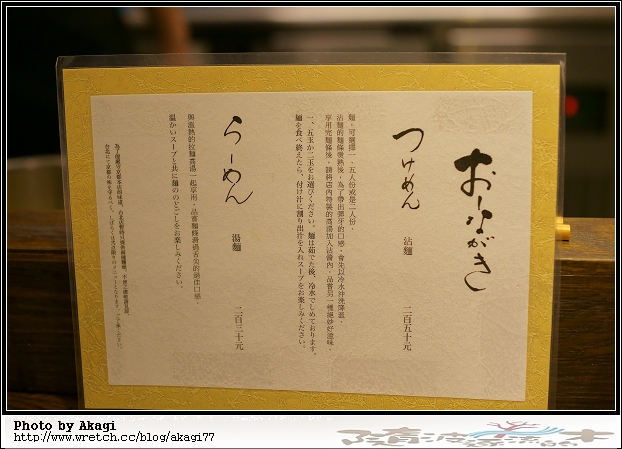 おしながき
つけめん
沾麵
二百五十元
麵,可選擇一.五人份或是二人份,
沾麵的麵條煮熟後,為了帶出彈牙的口感,會先以冷水沖洗降溫,
享用完麵條後,請將店內特製的高湯加入沾醬內,品嘗另一種絕妙好滋味。
一、五玉か二玉をお選びください。麺は茹でた後、冷水でしめております。
麺を食べ終えたら、付け汁に割り出汁を入れスープをお楽しみください。
らーめん
湯麵
二百三十元
與溫熱的拉麵高湯一起享用,品嘗麵條滑過舌尖的絕佳口感。
温かいスープと共に麺ののどごしをお楽しみください。
Photo by Akagi
http://www.wretch.cc/blog/akagi77
隨波逐流的木